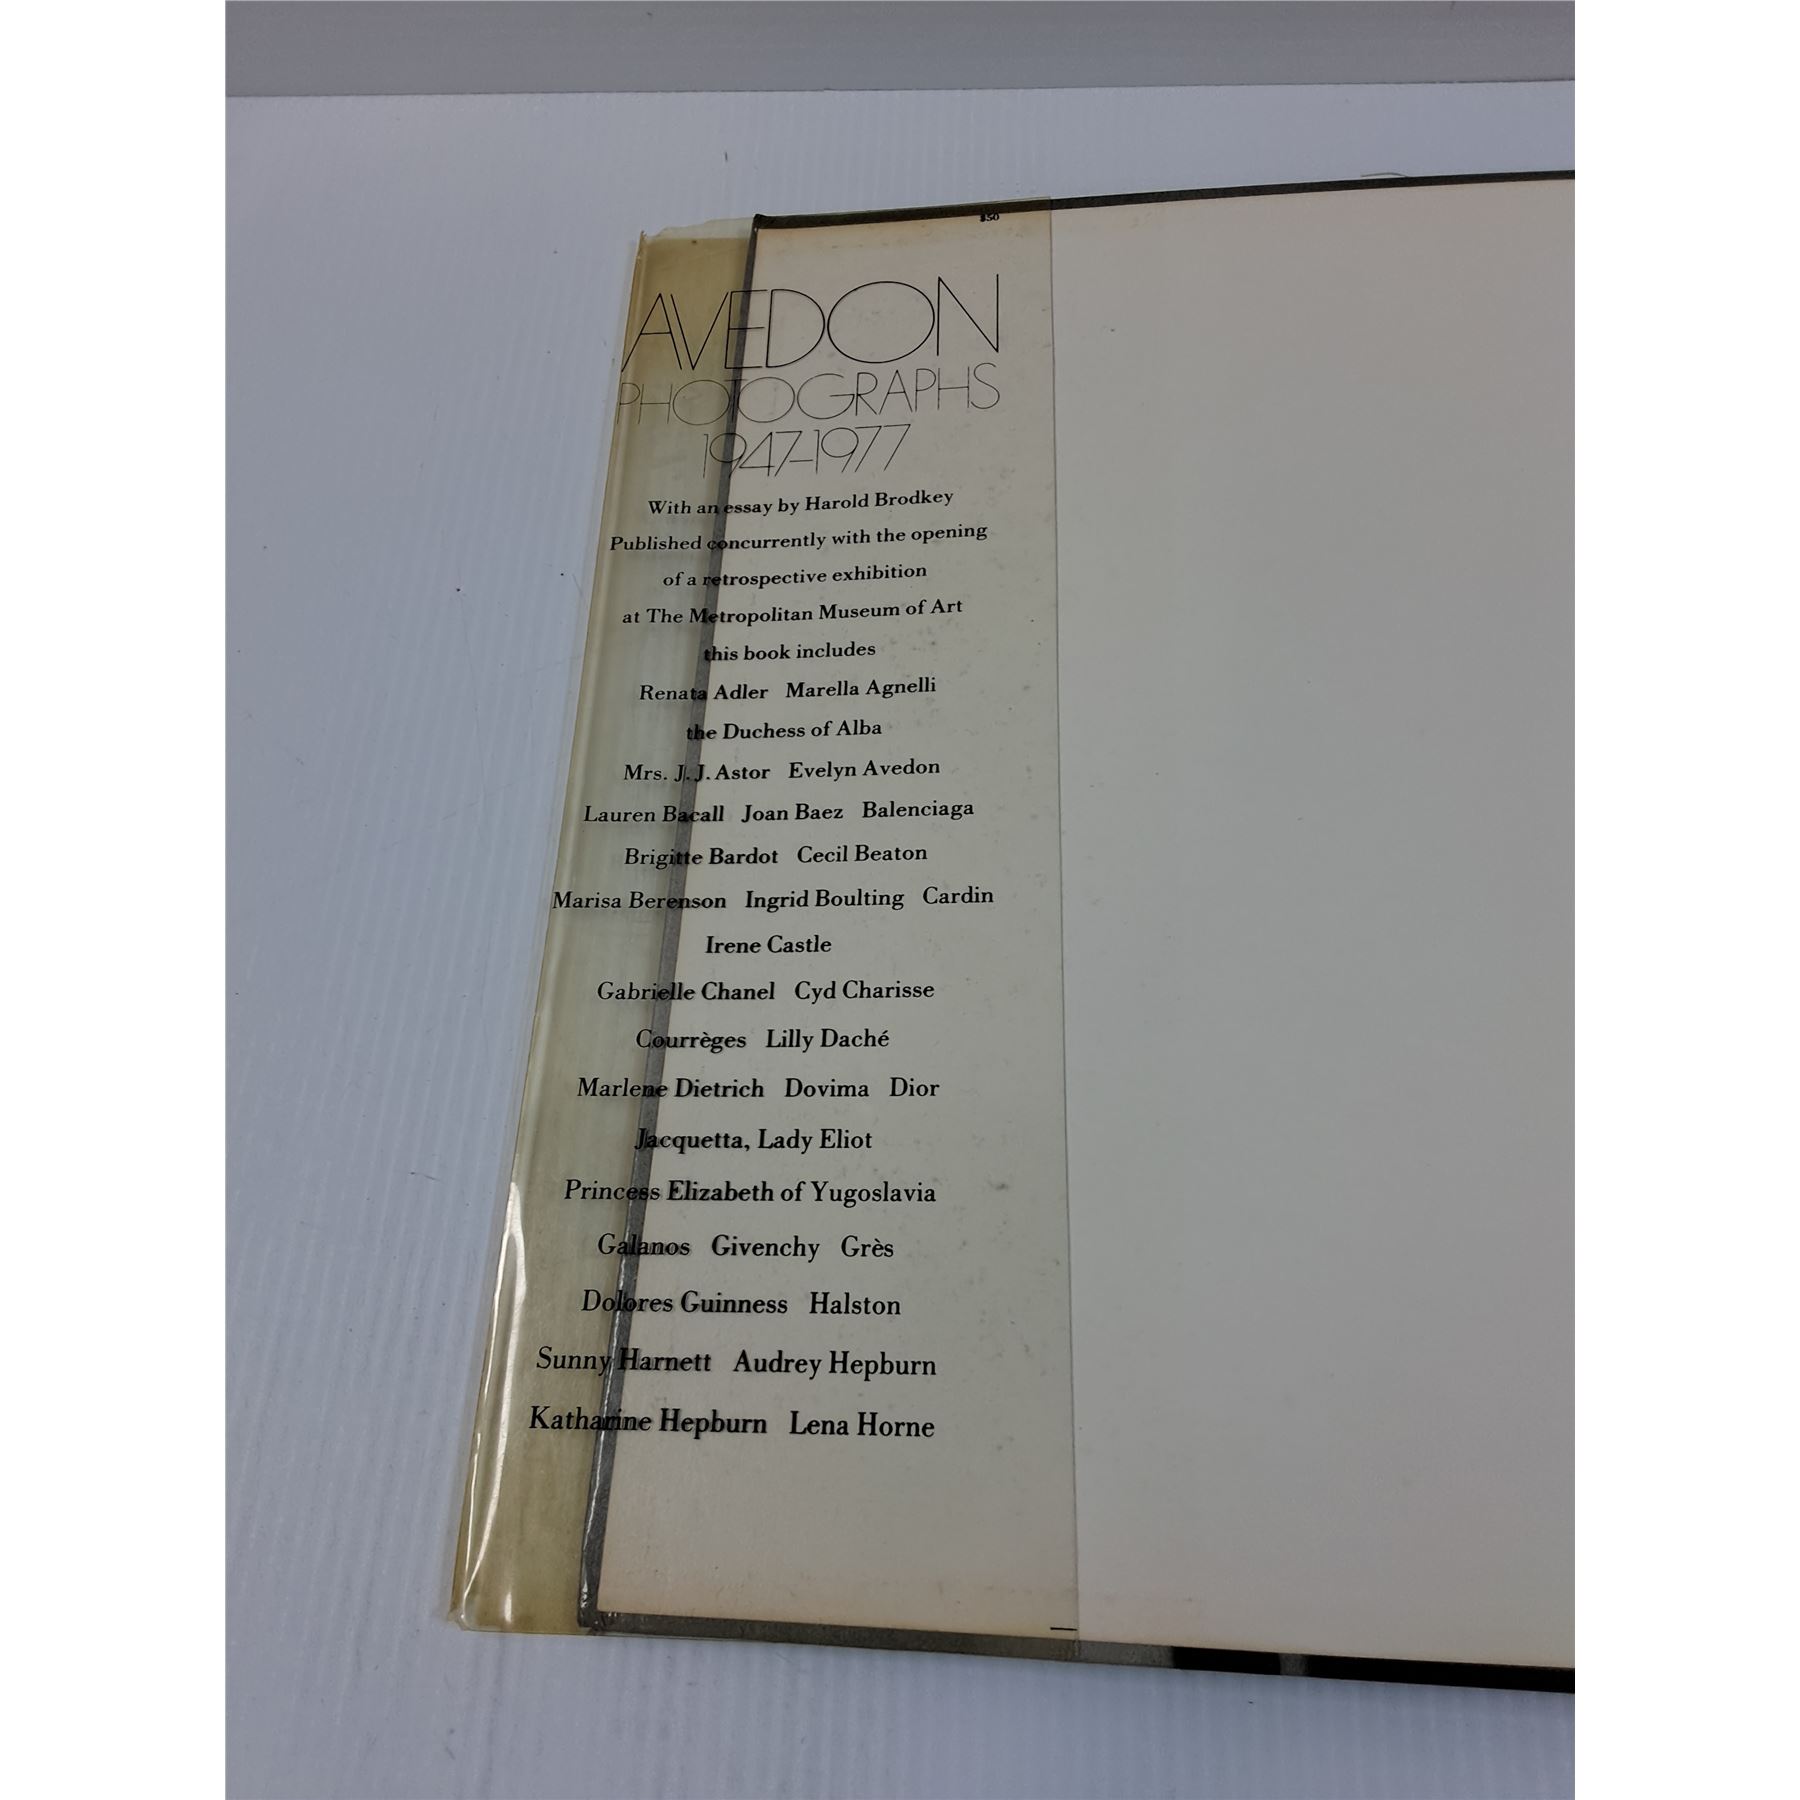 $50
AVEDON
PHOTOGRAPHS
1947–1977
With an essay by Harold Brodkey
Published concurrently with the opening
of a retrospective exhibition
at The Metropolitan Museum of Art
this book includes
Renata Adler Marella Agnelli
the Duchess of Alba
Mrs. J. J. Astor Evelyn Avedon
Lauren Bacall Joan Baez Balenciaga
Brigitte Bardot Cecil Beaton
Marisa Berenson Ingrid Boulting Cardin
Irene Castle
Gabrielle Chanel Cyd Charisse
Courrèges Lilly Daché
Marlene Dietrich Dovima Dior
Jacquetta, Lady Eliot
Princess Elizabeth of Yugoslavia
Galanos Givenchy Grès
Dolores Guinness Halston
Sunny Harnett Audrey Hepburn
Katharine Hepburn Lena Horne